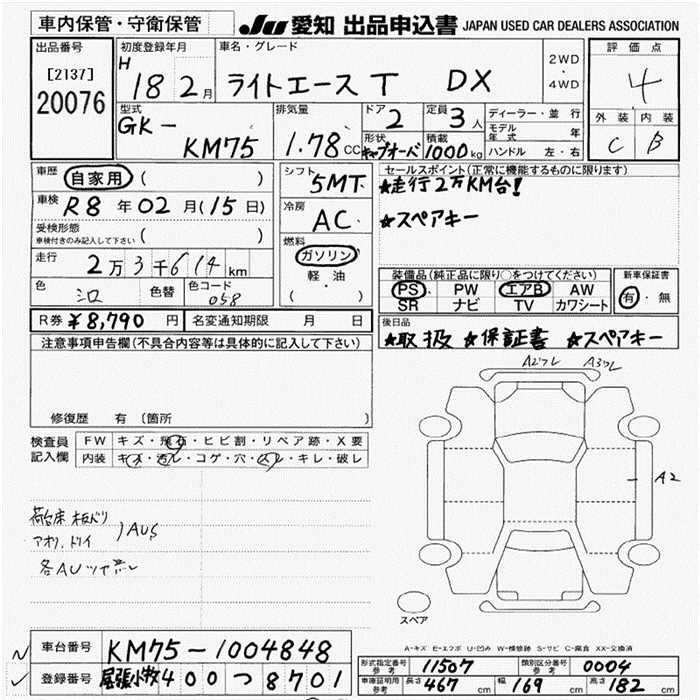 車内保管・守衛保管
JU 愛知 出品申込書 JAPAN USED CAR DEALERS ASSOCIATION
出品番号
[2137]
20076
初度登録年月
H 18 2月
車名・グレード
ライトエースT DX
2WD
・
4WD
評価点
4
外装 内装
C B
型式
GK-
KM75
排気量
1.78 CC
ドア
2
定員
3人
形状
キャブオーバ
積載
1000kg
ディーラー・並行
モデル年式 年
ハンドル 左・右
車歴 自家用 ( )
車検 R8年02月(15日)
受検形態
車検付きのみ記入して下さい ( )
走行 2万3千614km
色 シロ 色替 色コード 058
シフト
5MT
冷房
AC
燃料
ガソリン
軽・油
( )
セールスポイント(正常に機能するものに限ります)
★走行2万KM台!
★スペアキー
装備品(純正品に限り○をつけてください)
PS PW エアB AW
SR ナビ TV カワシート
新車保証書
有・無
R券 ¥8,790円 名変通知期限 月 日
後日品
★取扱 ★保証書 ★スペアキー
注意事項申告欄(不具合内容等は具体的に記入して下さい)
修復歴 有 (箇所 )
検査員記入欄
FW キズ・飛石・ヒビ割・リペア跡・X要
内装 キズ・汚レ・コゲ・穴・スレ・キレ・破レ
A3ワレ
A2
スペア
A-キズ E-エクボ U-凹み W-補修跡 S-サビ C-腐食 XX-交換済
車台番号 KM75-1004848
登録番号 尾張小牧400つ8701
形式指定番号 参考 11507 類別区分番号 参考 0004
車庫証明用 参考 長さ 467cm 幅 169cm 高さ 182cm